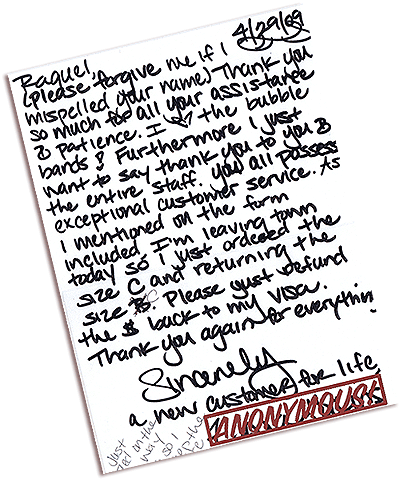 4/29/09
Raquel,
(please forgive me if I
mispelled your name) Thank you
so much for all your assistance
& patience. I ♡ the bubble
bands! Furthermore I just
want to say thank you to you &
the entire staff. you all possess
exceptional customer service. As
I mentioned on the form
included I'm leaving town
today so I just ordered the
size C and returning the
size B. Please just refund
the $ back to my visa.
Thank you again for everything.
Sincerely
a new customer for life
ANONYMOUS!
Just
on the
way
so I
the